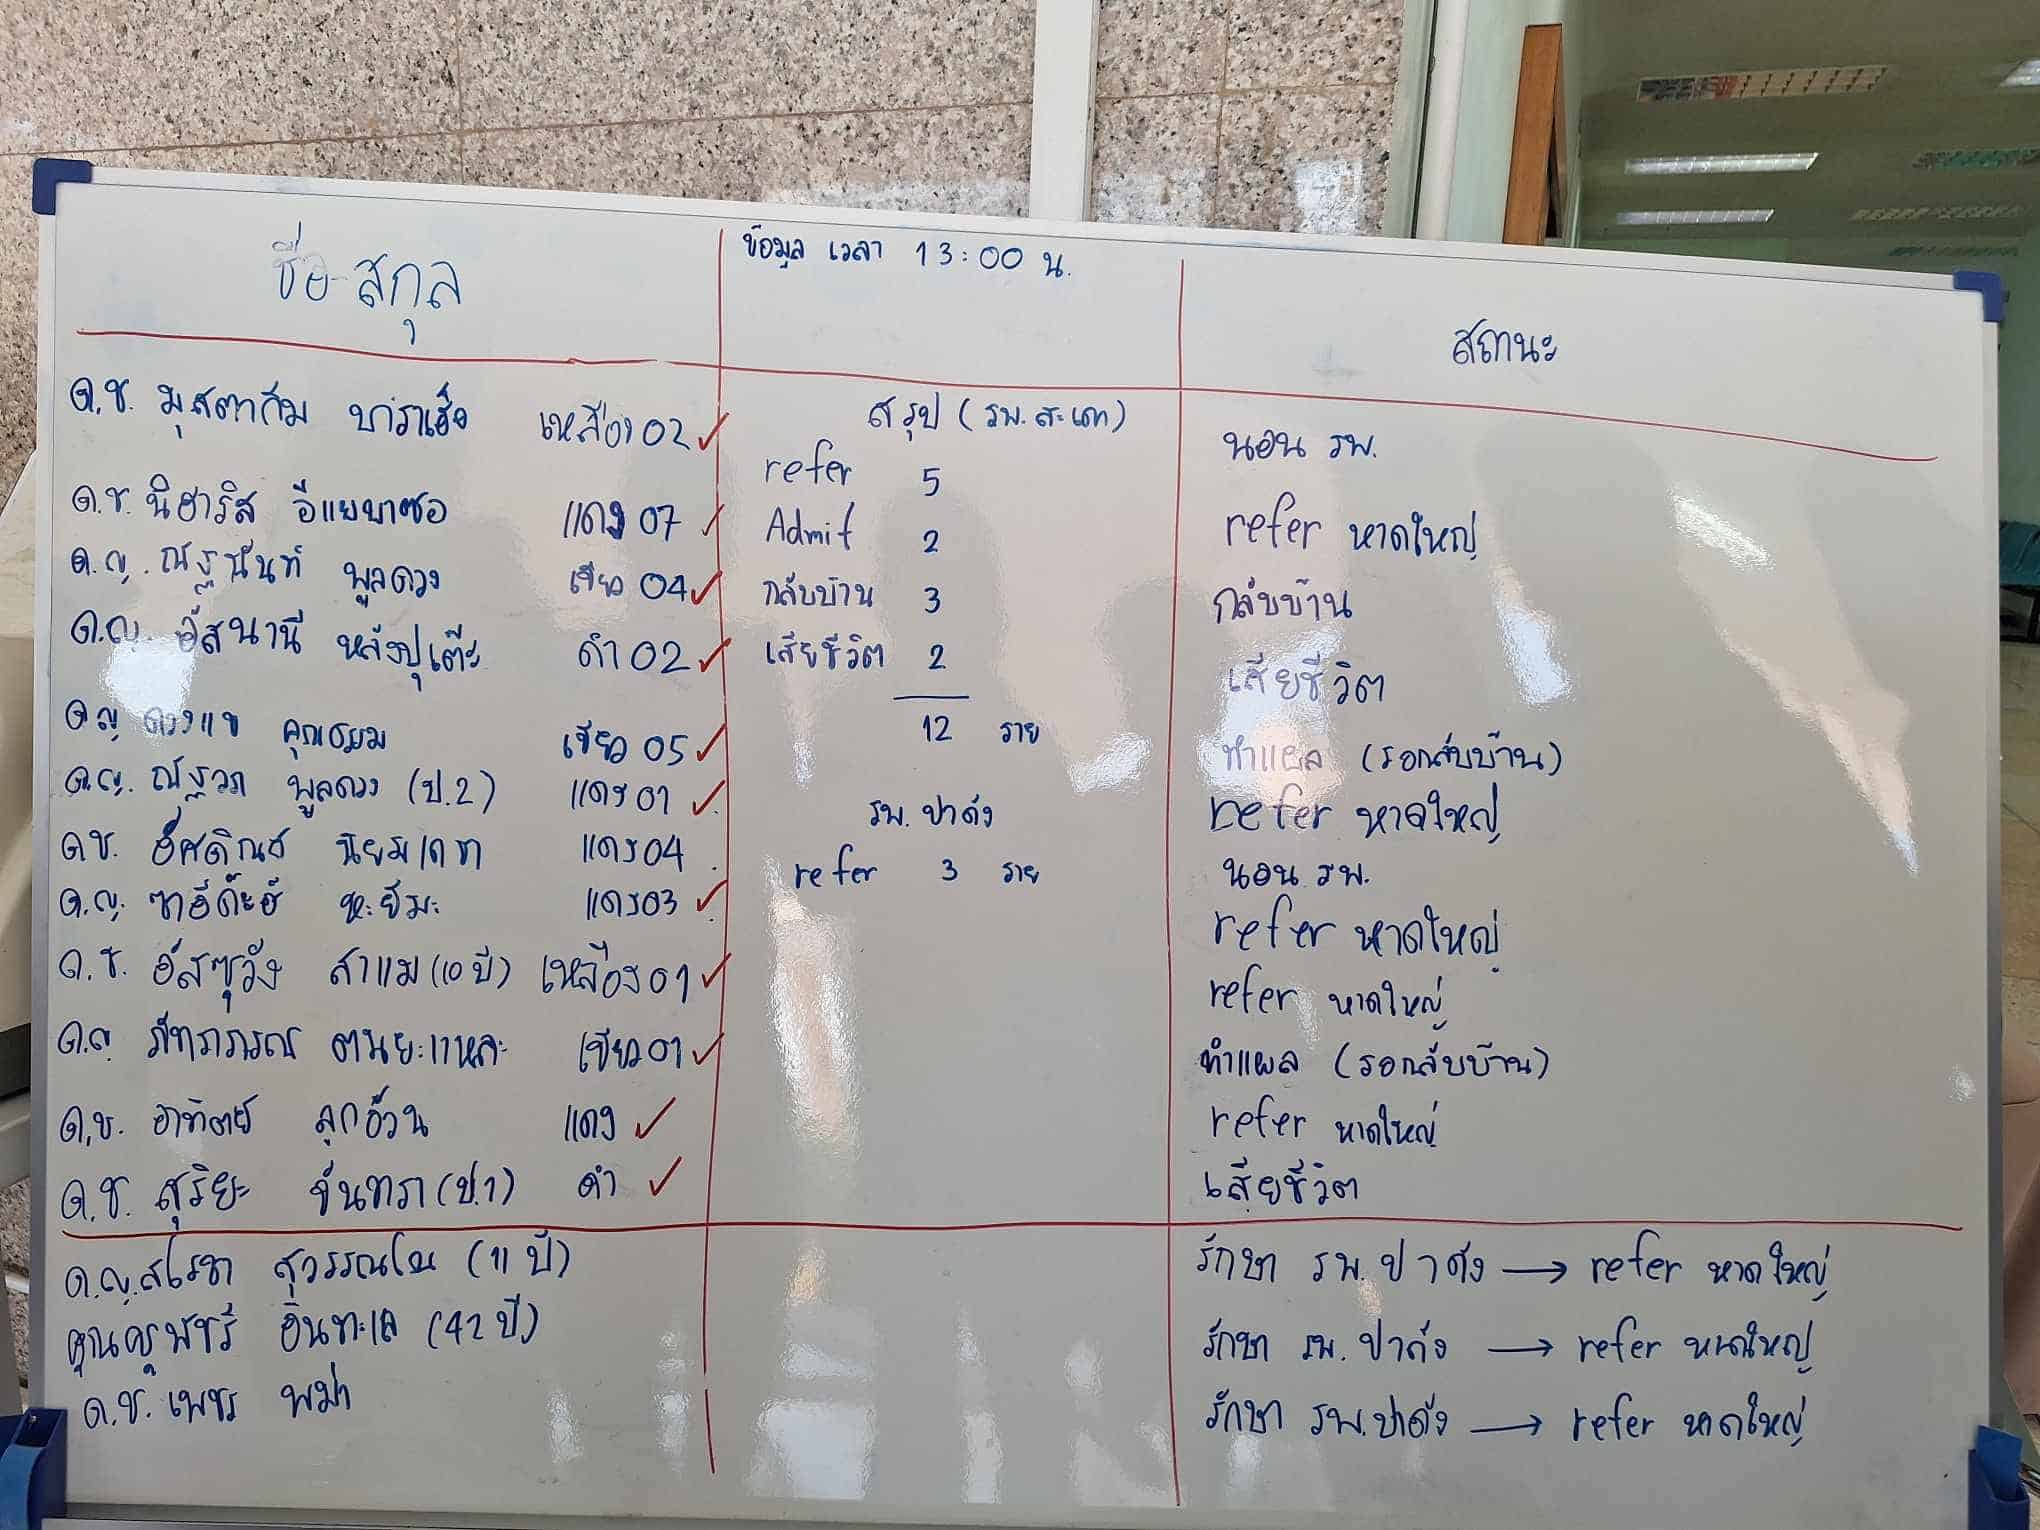 ชื่อ-สกุล
ข้อมูล เวลา 13:00 น.
สถานะ
ด.ช. มุสตากีม บาราเฮ็ง เหลือง 02 ✓
สรุป (รพ.สะเดา)
นอน รพ.
refer 5
ด.ช. นิฮาริส อีแยบาซอ แดง 07 ✓
Admit 2
refer หาดใหญ่
ด.ญ. ณัฐนันท์ พูลดวง เขียว 04 ✓
กลับบ้าน 3
กลับบ้าน
ด.ญ. อัสนานี หลังปุเต๊ะ ดำ 02 ✓
เสียชีวิต 2
เสียชีวิต
12 ราย
ด.ญ. ดวงแข เขียว 05 ✓
ทำแผล (รอกลับบ้าน)
ด.ญ. ณัฐวภา พูลดวง (ป.2) แดง 01 ✓
refer หาดใหญ่
รพ. ปาดัง
ด.ช. นิยมเดชา แดง 04
refer 3 ราย
นอน รพ.
ด.ญ. ซาอีด๊ะฮ์ หะยีมะ แดง 03 ✓
refer หาดใหญ่
ด.ช. อัสซุวัง สาแม (10 ปี) เหลือง 01 ✓
refer หาดใหญ่
ด.ญ. ภัทราภรณ์ ตนยะแหละ เขียว 01 ✓
ทำแผล (รอกลับบ้าน)
ด.ช. อาทิตย์ ลูกอ้วน แดง ✓
refer หาดใหญ่
ด.ช. สุริยะ จันทรา (ป.1) ดำ ✓
เสียชีวิต
ด.ญ. สโรชา สุวรรณโน (11 ปี)
รักษา รพ. ปาดัง → refer หาดใหญ่
คุณครูพัชรี อินทะเล (42 ปี)
รักษา รพ. ปาดัง → refer หาดใหญ่
ด.ช. เพชร พม่า
รักษา รพ. ปาดัง → refer หาดใหญ่